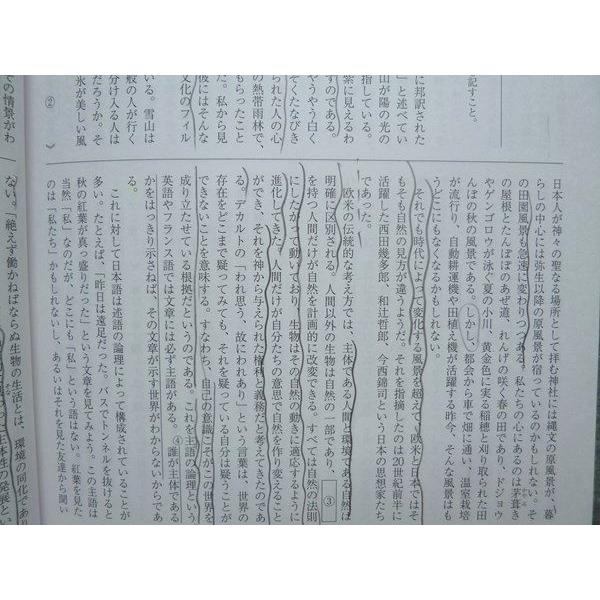 記すこと。
に邦訳された
」と述べてい
山が陽の光の
指している。
紫に見えるわ
うやう白く
ぞくたなびき
すのである。
られた人の心
の熱帯雨林で、
もらったこと
た。私から見
彼にはそんな
文化のフィル
いる。雪山は
般の人が行く
だろうか。そ
分け入る人は
氷が美しい風
②
での情景がわ
日本人が神々の聖なる場所として拝む神社には縄文の原風景が、暮
らしの中心には弥生以降の原風景が宿っているのかもしれない。そ
の田園風景も急速に変わりつつある。私たちの心にあるのは茅葺き
の屋根とたんぼのあぜ道、れんげの咲く春の田であり、ドジョウ
やゲンゴロウが泳ぐ夏の小川、黄金色に実る稲穂と刈り取られた田
んぼの秋の風景である。しかし、都会から車で畑に通い、温室栽培
が流行り、自動耕運機や田植え機が活躍する昨今、そんな風景はも
うどこにもなくなるかもしれない。
それでも時代によって変化する風景を超えて、欧米と日本ではそ
もそも自然の見方が違うようだ。それを指摘したのは20世紀前半に
活躍した西田幾多郎、和辻哲郎、今西錦司という日本の思想家たち
であった。
欧米の伝統的な考え方では、主体である人間と環境である自然は
明確に区別される。人間以外の生物は自然の一部であり、③
を持つ人間だけが自然を計画的に改変できる。すべては自然の法則
にしたがって動いており、生物はその自然の動きに適応するように
進化してきた。人間だけが自分たちの意思で自然を作り変えること
ができ、それを神から与えられた権利と義務だと考えてきたのであ
る。デカルトの「われ思う、故にわれあり」という言葉は、世界の
存在をどこまで疑ってみても、それを疑っている自分は疑うことが
できないことを意味する。すなわち、自己の意識こそがこの世界を
成り立たせている根拠だというのである。これを主語の論理という
英語やフランス語では文章には必ず主語がある。④誰が主体である
かをはっきり示さねば、その文章が示す世界がわからないからであ
る。
これに対して日本語は述語の論理によって構成されていることが
多い。たとえば、「昨日は遠足だった。バスでトンネルを抜けると
秋の紅葉が真っ盛りだった」という文章を見てみよう。この主語は
当然「私」なのだが、どこにも「私」という語はない。紅葉を見た
のは「私たち」かもしれないし、あるいはそれを見た友達から聞い
ない。「絶えず働かねばならぬ生物の生活とは、環境の同化であり